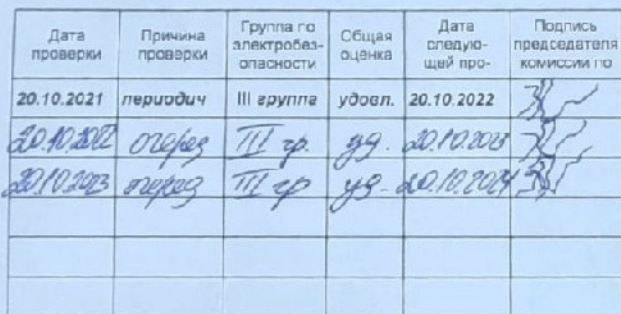 Дата проверки Причина проверки Группа по электробезопасности Общая оценка Дата следую-щей про- Подпись председателя комиссии по
20.10.2021 периодич III группа удовл. 20.10.2022
20.10.2022 очеред III гр. уд. 20.10.2023
20.10.2023 очеред III гр уд. 20.10.2024